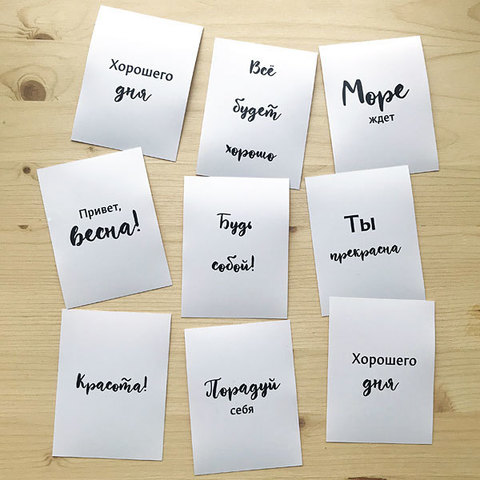 Хорошего
дня
Всё
будет
хорошо
Море
ждет
Привет,
весна!
Будь
собой!
Ты
прекрасна
Красота!
Порадуй
себя
Хорошего
дня